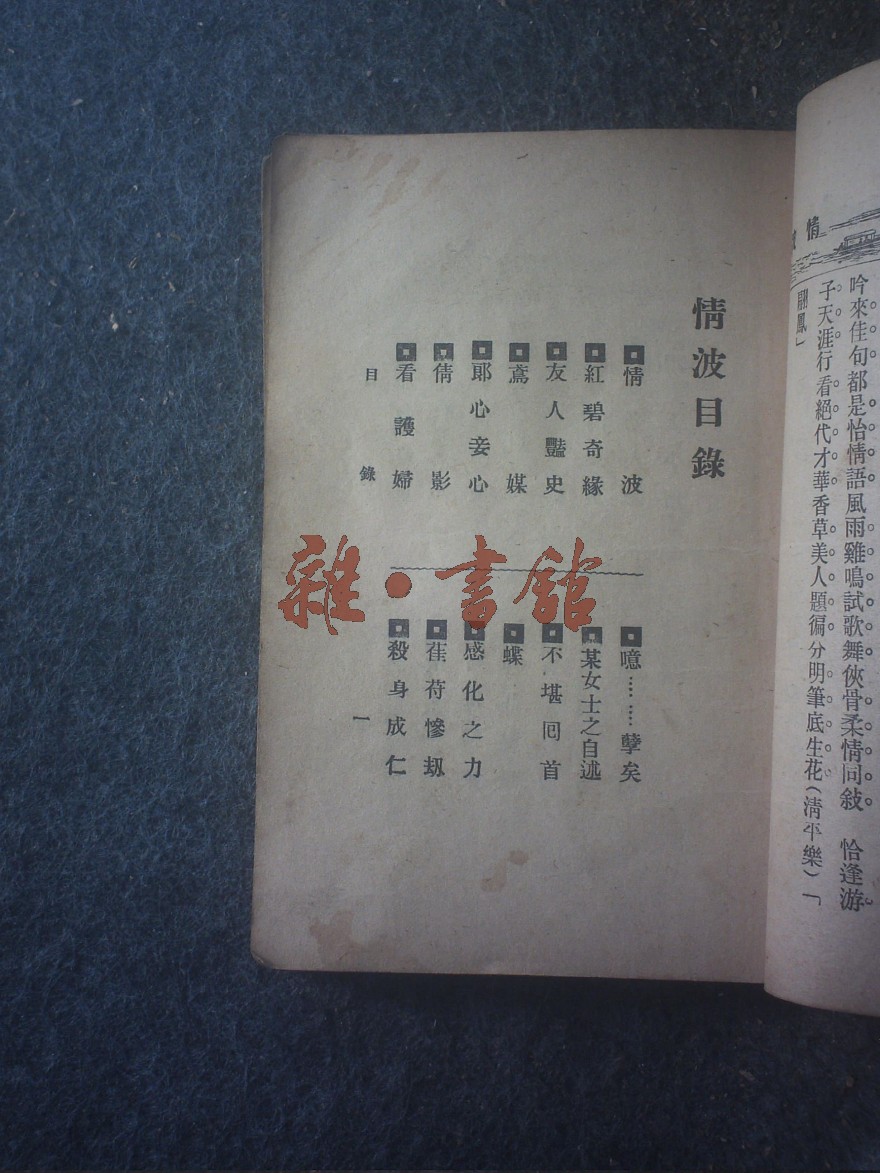 情
吟來佳句都是怡情語風雨雞鳴試歌舞俠骨柔情同敍　恰逢游
子天涯行看絕代才華香草美人題徧分明筆底生花（淸平樂）「
鳳」
情波目錄
情波
紅碧奇緣
友人豔史
鳶媒
郎心妾心
倩影
看護婦
噫……孽矣
某女士之自述
不堪囘首
蝶
感化之力
萑苻慘刼
殺身成仁
目錄
一
雜·書館